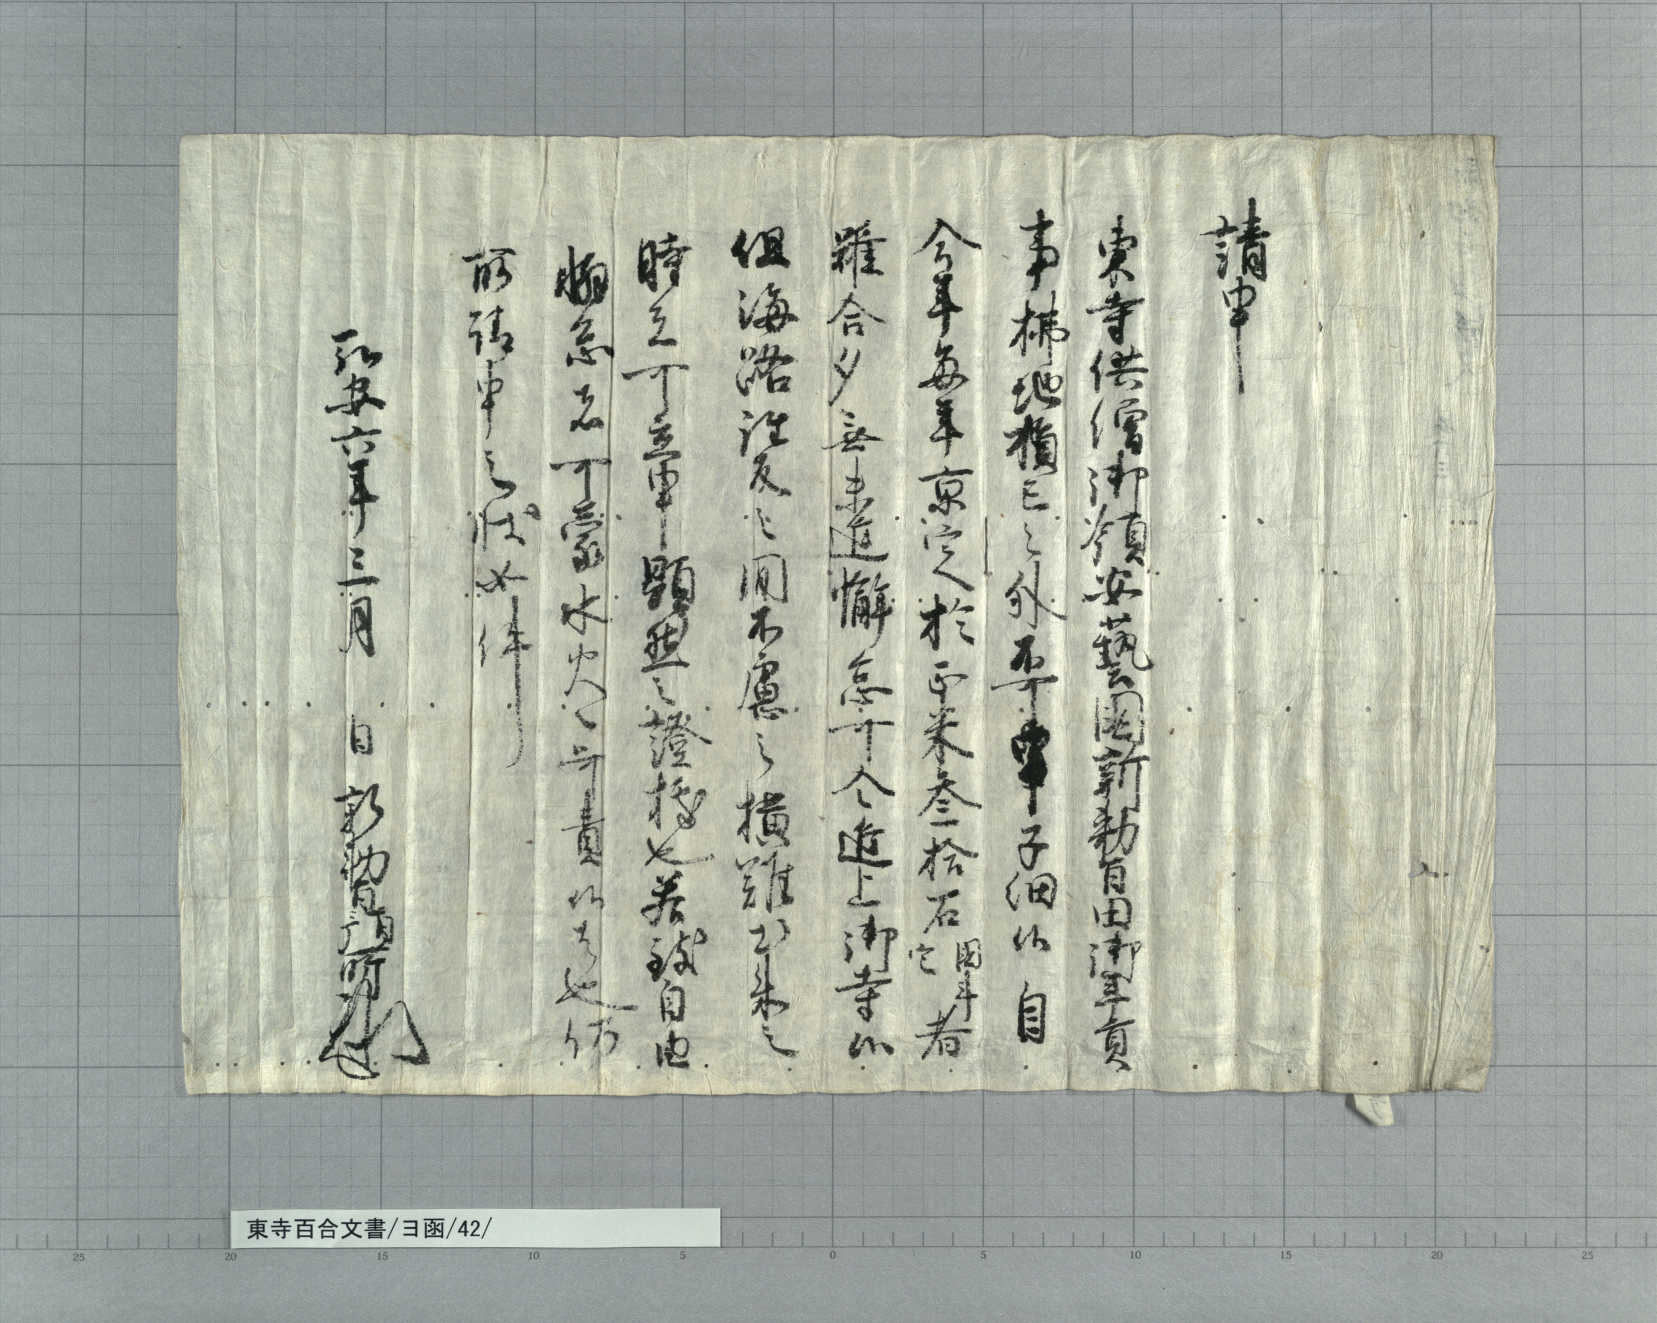 請申
東寺供僧御領安藝國新勅旨田御年貢
事桃地損亡之外不可申子細候自
今年毎年京定ニ於正米參拾石國斗定者
雖合夕無未進懈怠可令進上御寺候
但海路往反之間不慮之横難出来之
時者可立申顕然之證據也若致自由
懈怠者可蒙水火之呵責候者也仍
所請申之状如件
弘安六年三月 日 新勅旨
東寺百合文書/ヨ函/42/
25 20 15 10 5 0 5 10 15 20 25